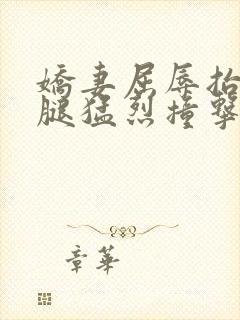 嬌妻屈辱抬
腿猛烈撞擊
章華